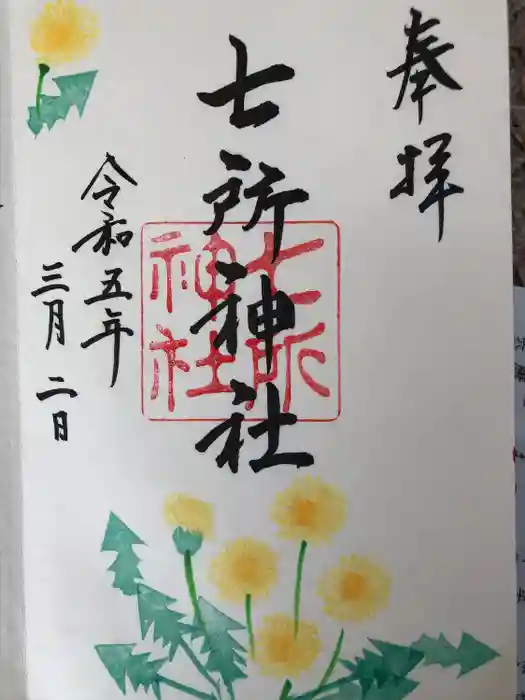 奉拝
七所神社
七所
神社
令和五年
三月二日